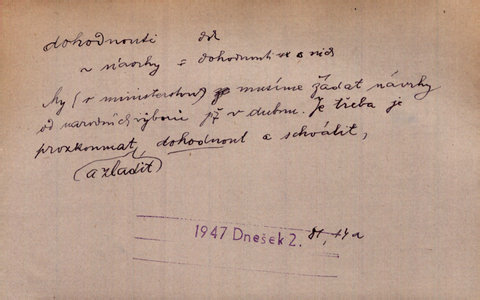 dohodnouti dok
~ návrhy = dohodnouti se o nich
My (v ministerstvu) je musíme žádat návrhy
od národních výborů již v dubnu. Je třeba je
prozkoumat, dohodnout a schválit,
(a zladit)
1947 Dnešek 2. 81, 14a